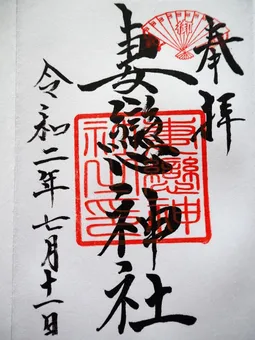 奉拝
妻戀神社
令和二年七月十一日
妻戀神社之印